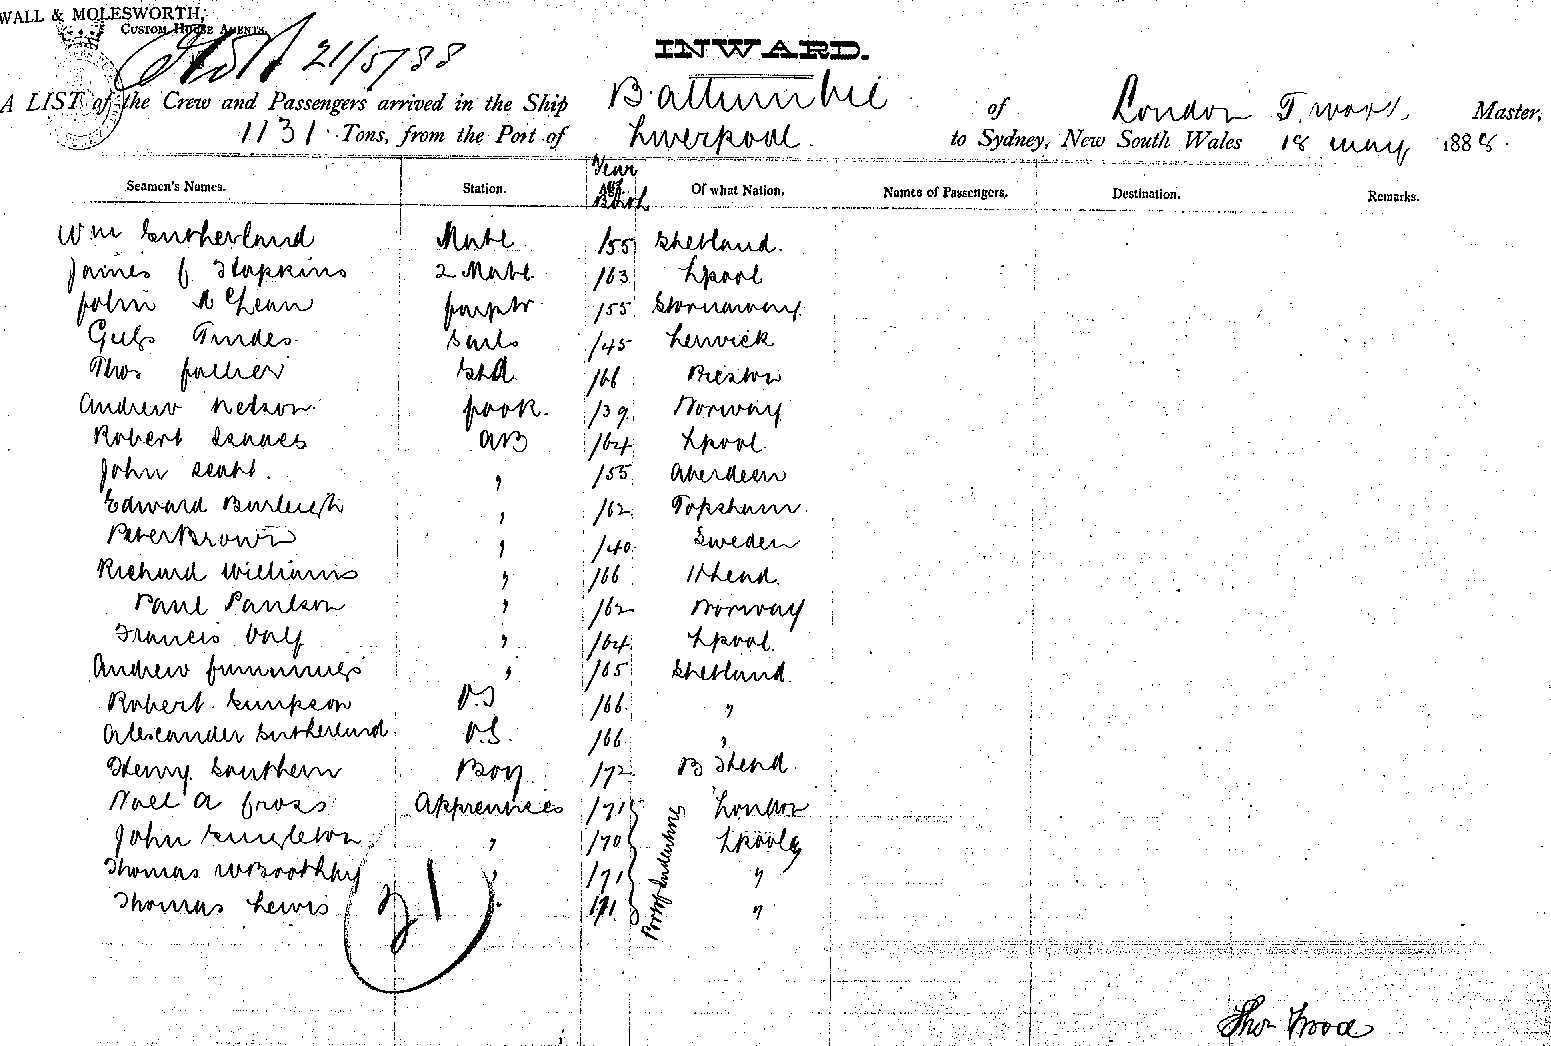 WALL & MOLESWORTH,
CUSTOM HOUSE AGENTS.
21/5/88
INWARD.
A LIST of the Crew and Passengers arrived in the Ship of London T. Wood Master,
1131 Tons, from the Port of Liverpool to Sydney, New South Wales 18 May 1888.
Seamen's Names. Station. Year of Birth Of what Nation. Names of Passengers. Destination. Remarks.
Wm Sutherland Mate /55 Shetland.
James C Hopkins 2 Mate /63 Lpool
John McLean Carptr /55 Stornaway
Sails /45 Lerwick
Thos Std /66 Preston
Andrew Nelson Cook. /39 Norway
Robert Isaacs AB /64 Lpool
John Scott. " /55 Aberdeen
Edward Burleigh " /62 Topsham
Peter Brown " /40 Sweden
Richard Williams " /66 Hhead.
Paul Paulson " /62 Norway
Francis " /64 Lpool.
Andrew Cummings " /65 Shetland
Robert Simpson O.S /66 "
Alexander Sutherland O.S. /66 "
Henry Southern Boy /72 B Head
Noel A Cross Apprentices /71 London
John Singleton " /70 Lpool
Thomas W Boothby " /71 "
Thomas Lewis " /71 "
Port of Indenture
21
Thos Wood